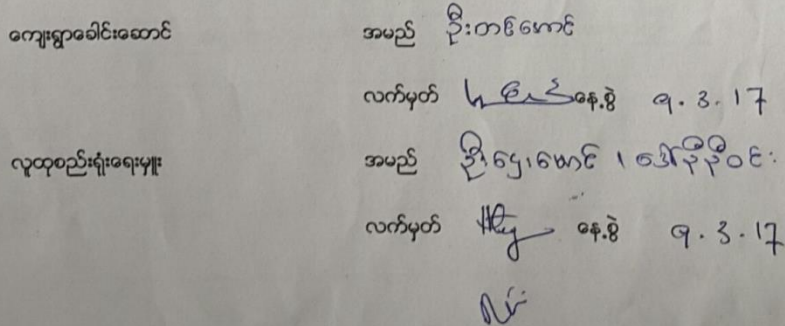 ကျေးရွာခေါင်းဆောင် အမည် ဦးတင်မောင်
လက်မှတ် နေ့စွဲ ၅.3.17
လူထုစည်းရုံးရေးမှူး အမည် ဦးဌေးမောင် ၊ ဒေါ်နီနီဝင်း
လက်မှတ် နေ့စွဲ ၅.3.17